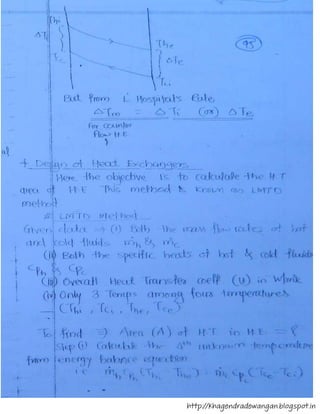 Thi
The
95
ΔTi
ΔTe
Tce
Tci
But from L' Hospital's Rule,
ΔTm = ΔTi (or) ΔTe
for counter
flow H.E
* Design of Heat Exchangers
Here the objective is to calculate the H.T
area of H.E This method is known as LMTD
method
# LMTD Method
Given data → (i) Both the mass flow rates of hot
and cold fluids ṁh & ṁc
(ii) Both the specific heats of hot & cold fluids
Cph & Cpc
(iii) Overall Heat Transfer coeff (U) in
(iv) Only 3 Temps among four temperatures
(Thi, Tci, The, Tce)
To find ⇒ Area (A) of H.T in H.E = ?
Step (i) Calculate the 4th unknown temperature
from energy balance equation
i.e ṁh Cph (Thi - The) = ṁc Cpc (Tce - Tci)
http://khagendradewangan.blogspot.in